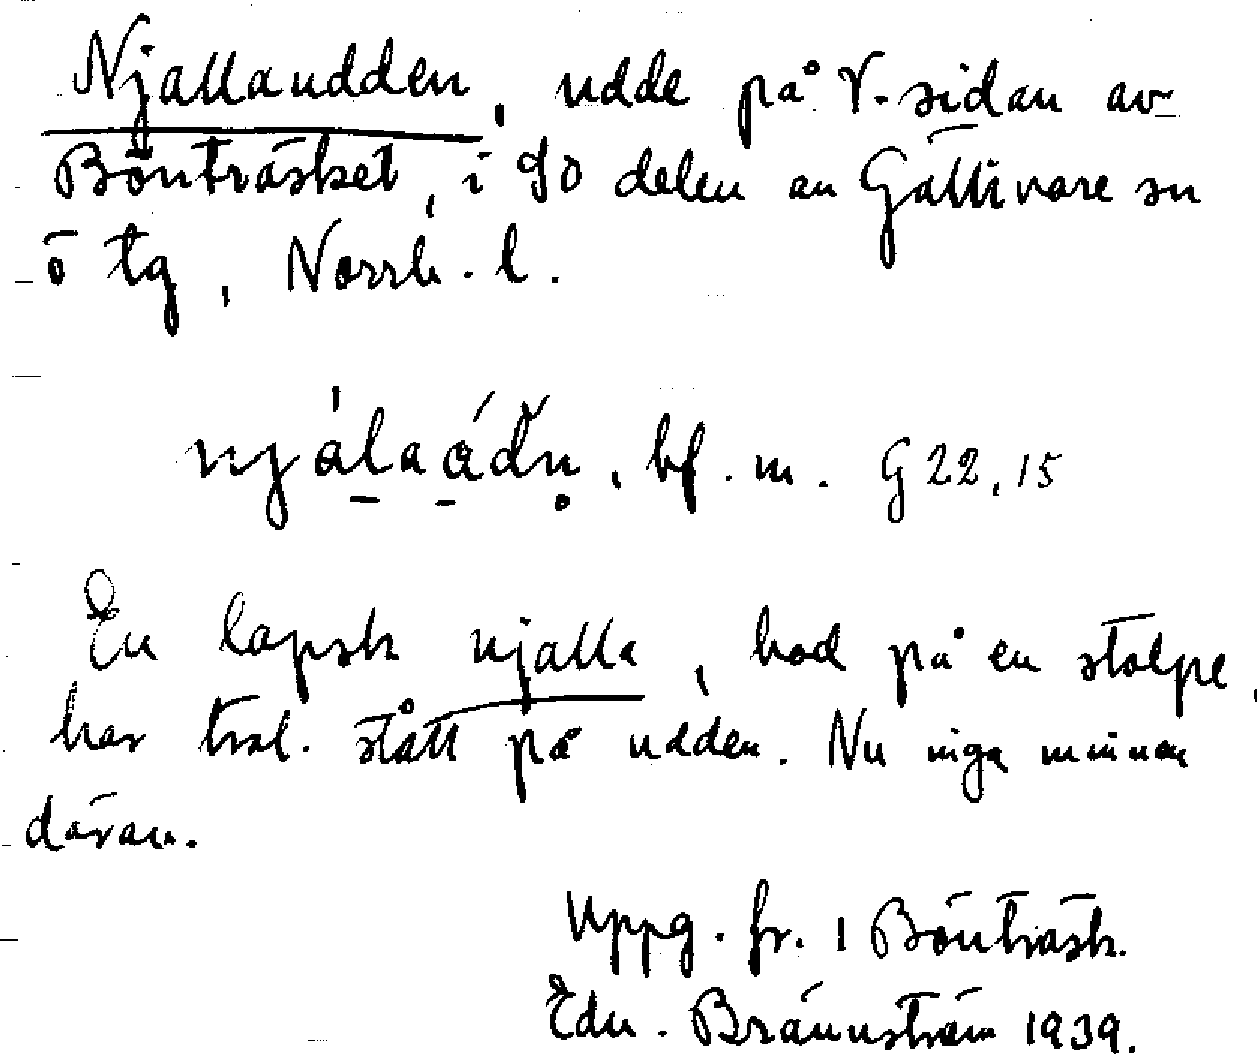 Njallaudden, udde på V-sidan av
Bönträsket, i SO delen av Gällivare sn
ö tg, Norrb. l.
bf. m. G 22, 15
En lapsk njalla, bod på en stolpe,
har trol. stått på udden. Nu inga minnen
därav.
Uppg. fr. 1 Bönträsk.
Edv. Brännström 1939.